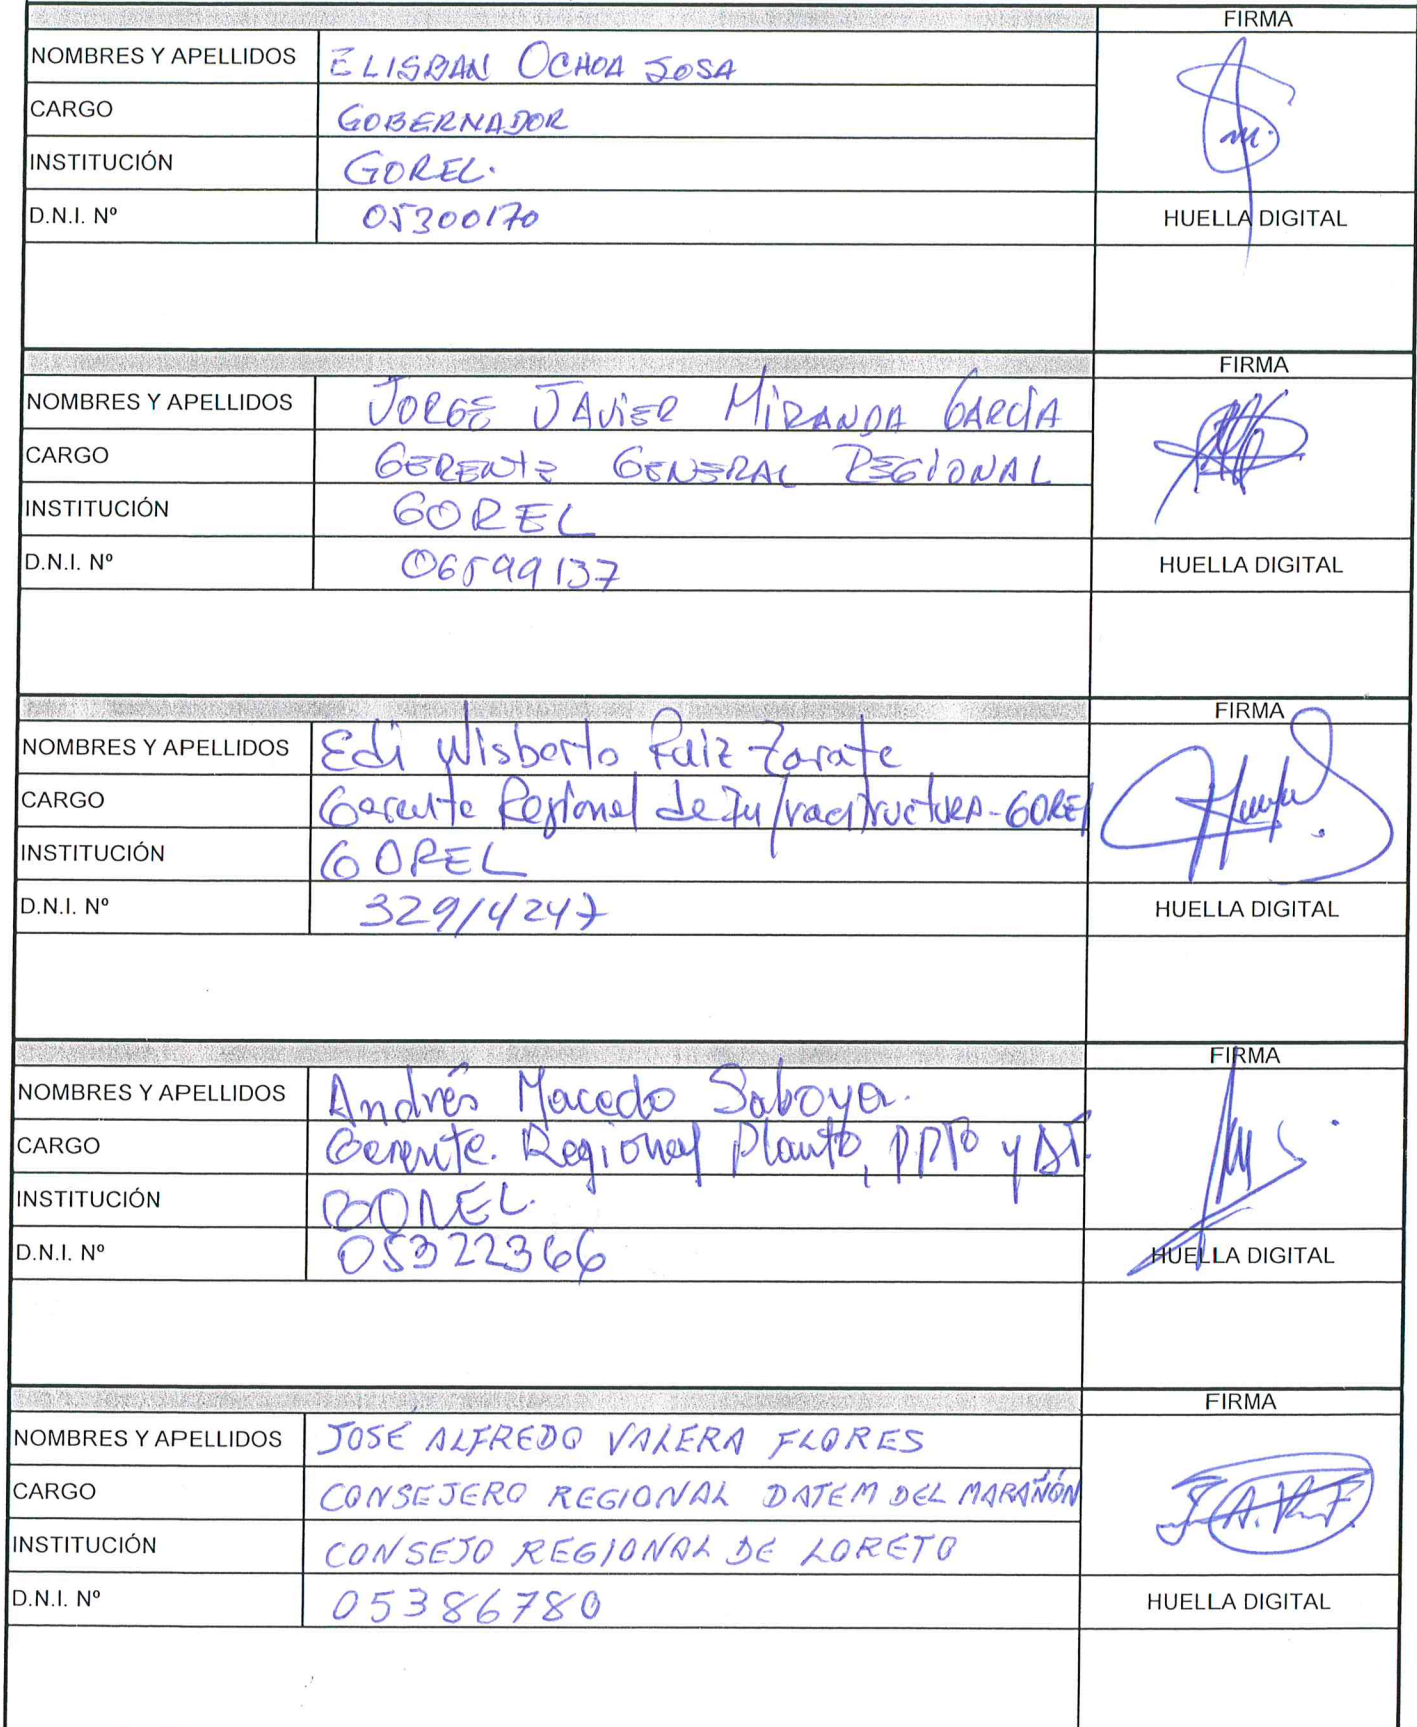 FIRMA
NOMBRES Y APELLIDOS ELISBAN OCHOA SOSA
CARGO GOBERNADOR
INSTITUCIÓN GOREL.
D.N.I. Nº 05300170 HUELLA DIGITAL
FIRMA
NOMBRES Y APELLIDOS JORGE JAViER MiRANDA GARCíA
CARGO GERENTE GENERAL REGiONAL
INSTITUCIÓN GOREL
D.N.I. Nº 06599137 HUELLA DIGITAL
FIRMA
NOMBRES Y APELLIDOS Edi Wisberto Ruiz Zarate
CARGO Gerente Regional de Infraestructura-GOREL
INSTITUCIÓN GOREL
D.N.I. Nº 32914247 HUELLA DIGITAL
FIRMA
NOMBRES Y APELLIDOS Andrés Macedo Saboya.
CARGO Gerente. Regional Planto, PPTO y AT.
INSTITUCIÓN GOREL.
D.N.I. Nº 05322366 HUELLA DIGITAL
FIRMA
NOMBRES Y APELLIDOS JOSÉ ALFREDO VALERA FLORES
CARGO CONSEJERO REGIONAL DATEM DEL MARAÑÓN
INSTITUCIÓN CONSEJO REGIONAL DE LORETO
D.N.I. Nº 05386780 HUELLA DIGITAL